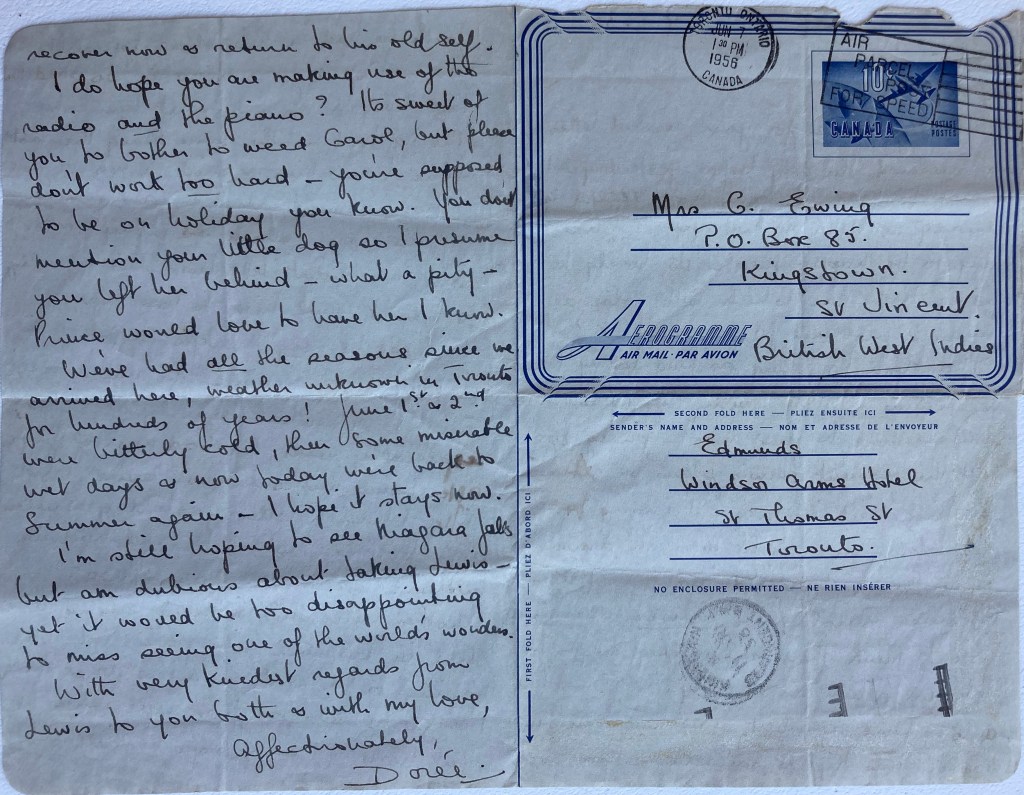 recover now & return to his old self.
I do hope you are making use of the
radio and the piano? Its sweet of
you to bother to weed Carol, but please
don't work too hard – you're supposed
to be on holiday you know. You don't
mention your little dog so I presume
you left her behind – what a pity –
Prince would love to have her I know.
We've had all the seasons since we
arrived here, weather unknown in Toronto
for hundreds of years! June 1st & 2nd
were bitterly cold, then some miserable
wet days & now today we're back to
Summer again – I hope it stays now.
I'm still hoping to see Niagara falls
but am dubious about taking Lewis –
yet it would be too disappointing
to miss seeing one of the world's wonders.
With very kindest regards from
Lewis to you both & with my love,
Affectionately,
Dorée.
TORONTO ONTARIO
JUN 7
1 30 PM
1956
CANADA
AIR
PARCELS
FOR SPEED
10
CANADA
POSTAGE
POSTES
Mrs G. Ewing
P.O. Box 85.
Kingstown.
St Vincent.
British West Indies
AEROGRAMME
AIR MAIL · PAR AVION
SECOND FOLD HERE — PLIEZ ENSUITE ICI
SENDER'S NAME AND ADDRESS — NOM ET ADRESSE DE L'ENVOYEUR
Edmunds
Windsor Arms Hotel
St Thomas St
Toronto.
FIRST FOLD HERE — PLIEZ D'ABORD ICI
NO ENCLOSURE PERMITTED — NE RIEN INSÉRER